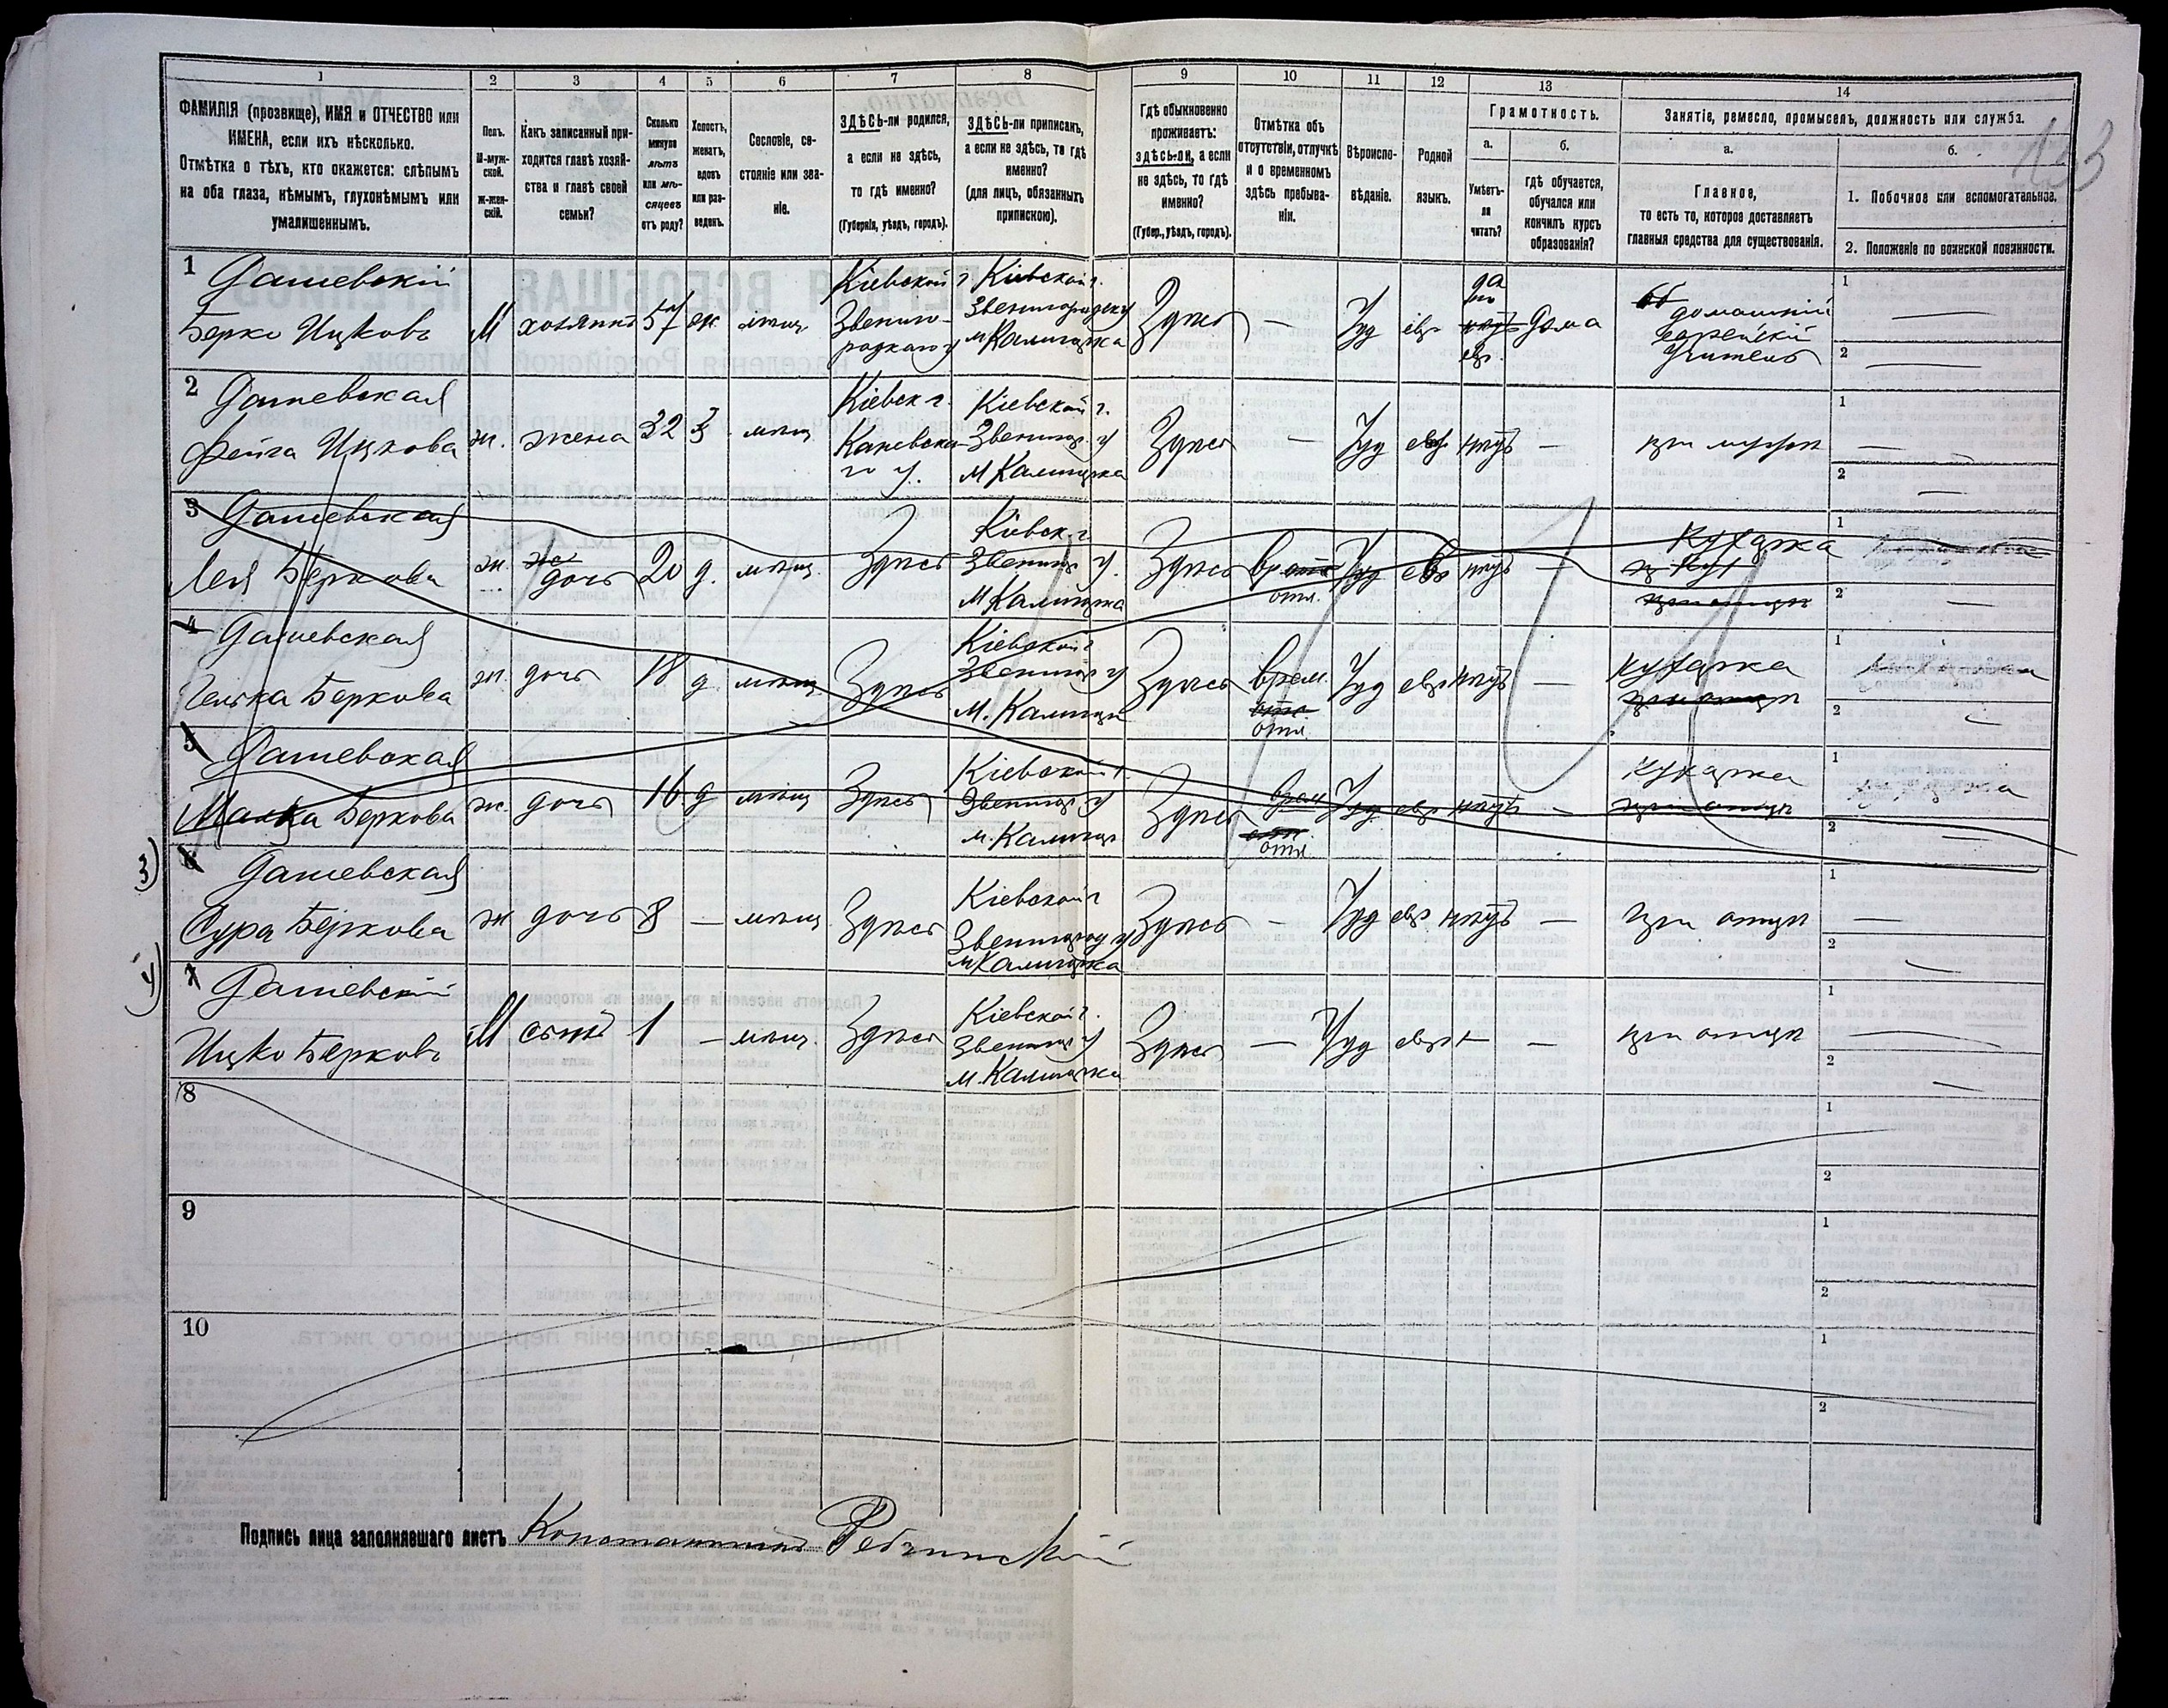 1 2 3 4 5 6 7 8 9 10 11 12 13 14
ФАМИЛІЯ (прозвище), ИМЯ и ОТЧЕСТВО или ИМЕНА, если ихъ нѣсколько.
Отмѣтка о тѣхъ, кто окажется: слѣпымъ на оба глаза, нѣмымъ, глухонѣмымъ или умалишеннымъ.
Полъ.
М-мужской.
Ж-женскій.
Какъ записанный приходится главѣ хозяйства и главѣ своей семьи?
Сколько минуло лѣтъ или мѣсяцевъ отъ роду?
Холостъ, женатъ, вдовъ или разведенъ.
Сословіе, состояніе или званіе.
ЗДѢСЬ-ли родился, а если не здѣсь, то гдѣ именно?
(Губернія, уѣздъ, городъ).
ЗДѢСЬ-ли приписанъ, а если не здѣсь, то гдѣ именно?
(для лицъ, обязанныхъ припискою).
Гдѣ обыкновенно проживаетъ: здѣсь-ли, а если не здѣсь, то гдѣ именно?
(Губер., уѣздъ, городъ).
Отмѣтка объ отсутствіи, отлучкѣ и о временномъ здѣсь пребываніи.
Вѣроисповѣданіе.
Родной языкъ.
Грамотность.
а.
Умѣетъ-ли читать?
б.
гдѣ обучается, обучался или кончилъ курсъ образованія?
Занятіе, ремесло, промыселъ, должность или служба.
а.
Главное,
то есть то, которое доставляетъ главныя средства для существованія.
б.
1. Побочное или вспомогательное.
2. Положеніе по воинской повинности.
133
1 Дашевскій
Берко Ицковъ М хозяинъ 57 ж. мѣщ. Кіевской г. Звенигородскаго у Кіевской г. Звенигородску м Калигорка Здѣсь — Іуд евр да по евр. дома домашній еврейскій учитель 1 — 2 —
2 Дашевская
Фейга Ицкова ж. жена 32 з мѣщ Кіевск г. Каневскаго у. Кіевской г. Звениг. у м Калигорка Здѣсь — Іуд евр нѣтъ — при мужѣ 1 — 2 —
3 Дашевская
Лея Беркова ж. дочь 20 д. мѣщ. Здѣсь Кіевск. г Звениг у. м Калигорка Здѣсь врем отл. Іуд евр нѣтъ — Кухарка при отцѣ 1 2 —
4 Дашевская
Беркова ж. дочь 18 д мѣщ Здѣсь Кіевской г Звениг у м. Калигорк Здѣсь врем. отл Іуд евр нѣтъ — кухарка при отцѣ 1 2 —
5 Дашевская
Малка Беркова ж. дочь 16 д мѣщ Здѣсь Кіевской г. Звениг у м. Калигор Здѣсь врем отл Іуд евр нѣтъ — кухарка при отцѣ 1 2 —
3) 6 Дашевская
Сура Беркова ж дочь 8 — мѣщ Здѣсь Кіевской г Звенигород у м Калигорка Здѣсь — Іуд евр нѣтъ — при отцѣ 1 — 2 —
4) 7 Дашевскій
Ицко Берковъ М сынъ 1 — мѣщ. Здѣсь Кіевской г. Звениг у м. Калигорка Здѣсь — Іуд евр — — при отцѣ 1 — 2 —
8 1 2
9 1 2
10 1 2
Подпись лица заполнявшаго листъ Константинъ